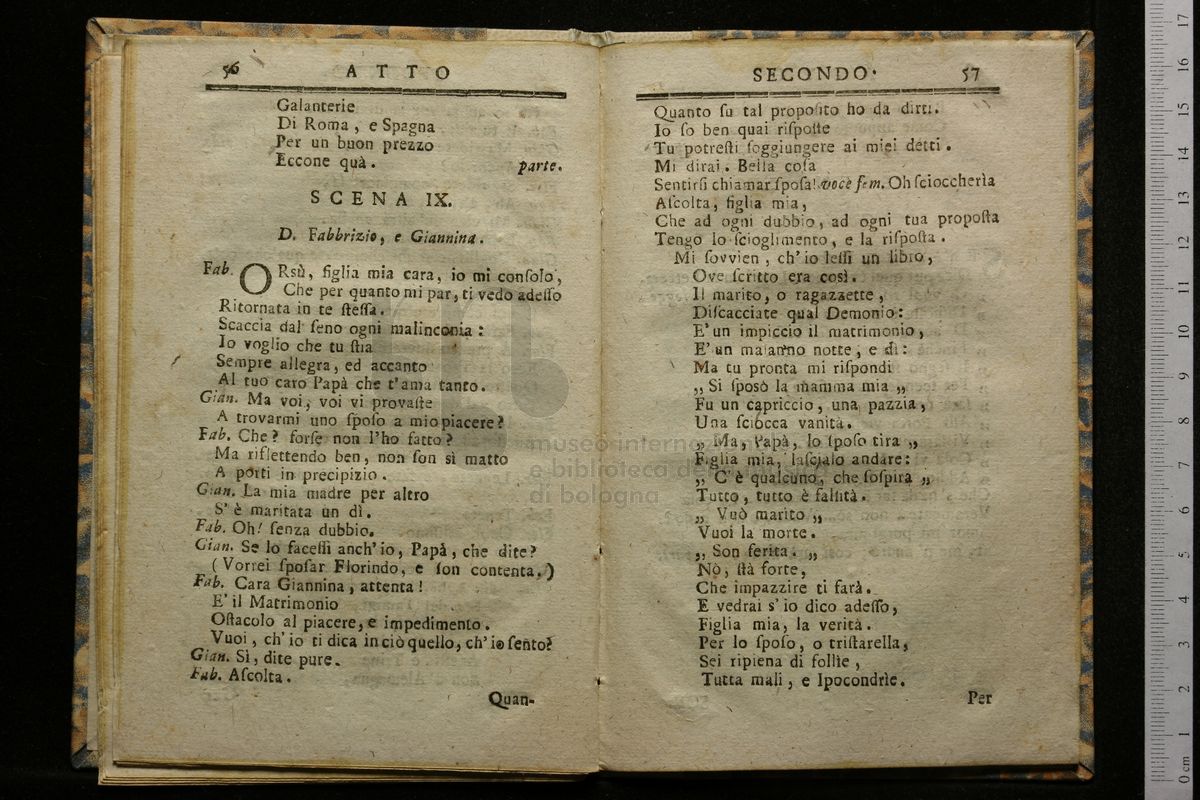 56 ATTO
Galanterie
Di Roma, e Spagna
Per un buon prezzo
Eccone quà. parte.
SCENA IX.
D. Fabbrizio, e Giannina.
Fab. ORsù, figlia mia cara, io mi conſolo,
Che per quanto mi par, ti vedo adeſſo
Ritornata in te ſteſſa.
Scaccia dal ſeno ogni malinconia:
Io voglio che tu ſtia
Sempre allegra, ed accanto
Al tuo caro Papà che t'ama tanto.
Gian. Ma voi, voi vi provaſte
A trovarmi uno ſpoſo a mio piacere?
Fab. Che? forſe non l'ho fatto?
Ma riflettendo ben, non ſon sì matto
A porti in precipizio.
Gian. La mia madre per altro
S'è maritata un dì.
Fab. Oh! ſenza dubbio.
Gian. Se lo faceſſi anch'io, Papà, che dite?
(Vorrei ſpoſar Florindo, e ſon contenta.)
Fab. Cara Giannina, attenta!
E' il Matrimonio
Oſtacolo al piacere, e impedimento.
Vuoi, ch'io ti dica in ciò quello, ch'io ſento?
Gian. Sì, dite pure.
Fab. Aſcolta.
Quan-
SECONDO. 57
Quanto ſu tal propoſito ho da dirti.
Io ſo ben quai riſpoſte
Tu potreſti ſoggiungere ai miei detti.
Mi dirai. Bella coſa
Sentirſi chiamar ſpoſa! voce fem. Oh ſcioccherìa
Aſcolta, figlia mia,
Che ad ogni dubbio, ad ogni tua propoſta
Tengo lo ſcioglimento, e la riſpoſta.
Mi ſovvien, ch'io leſſi un libro,
Ove ſcritto era così.
Il marito, o ragazzette,
Diſcacciate qual Demonio:
E' un impiccio il matrimonio,
E' un malanno notte, e dì:
Ma tu pronta mi riſpondi
„ Si ſposò la mamma mia „
Fu un capriccio, una pazzia,
Una ſciocca vanità.
„ Ma, Papà, lo ſpoſo tira „
Figlia mia, laſcialo andare:
„ C'è qualcuno, che ſoſpira „
Tutto, tutto è falſità.
„ Vuò marito „
Vuoi la morte.
„ Son ferita. „
Nò, ſtà forte,
Che impazzire ti farà.
E vedrai s'io dico adeſſo,
Figlia mia, la verità.
Per lo ſpoſo, o triſtarella,
Sei ripiena di follìe,
Tutta mali, e Ipocondrìe.
Per
museo internazionale
e biblioteca della musica
di bologna
0 cm 1 2 3 4 5 6 7 8 9 10 11 12 13 14 15 16 17